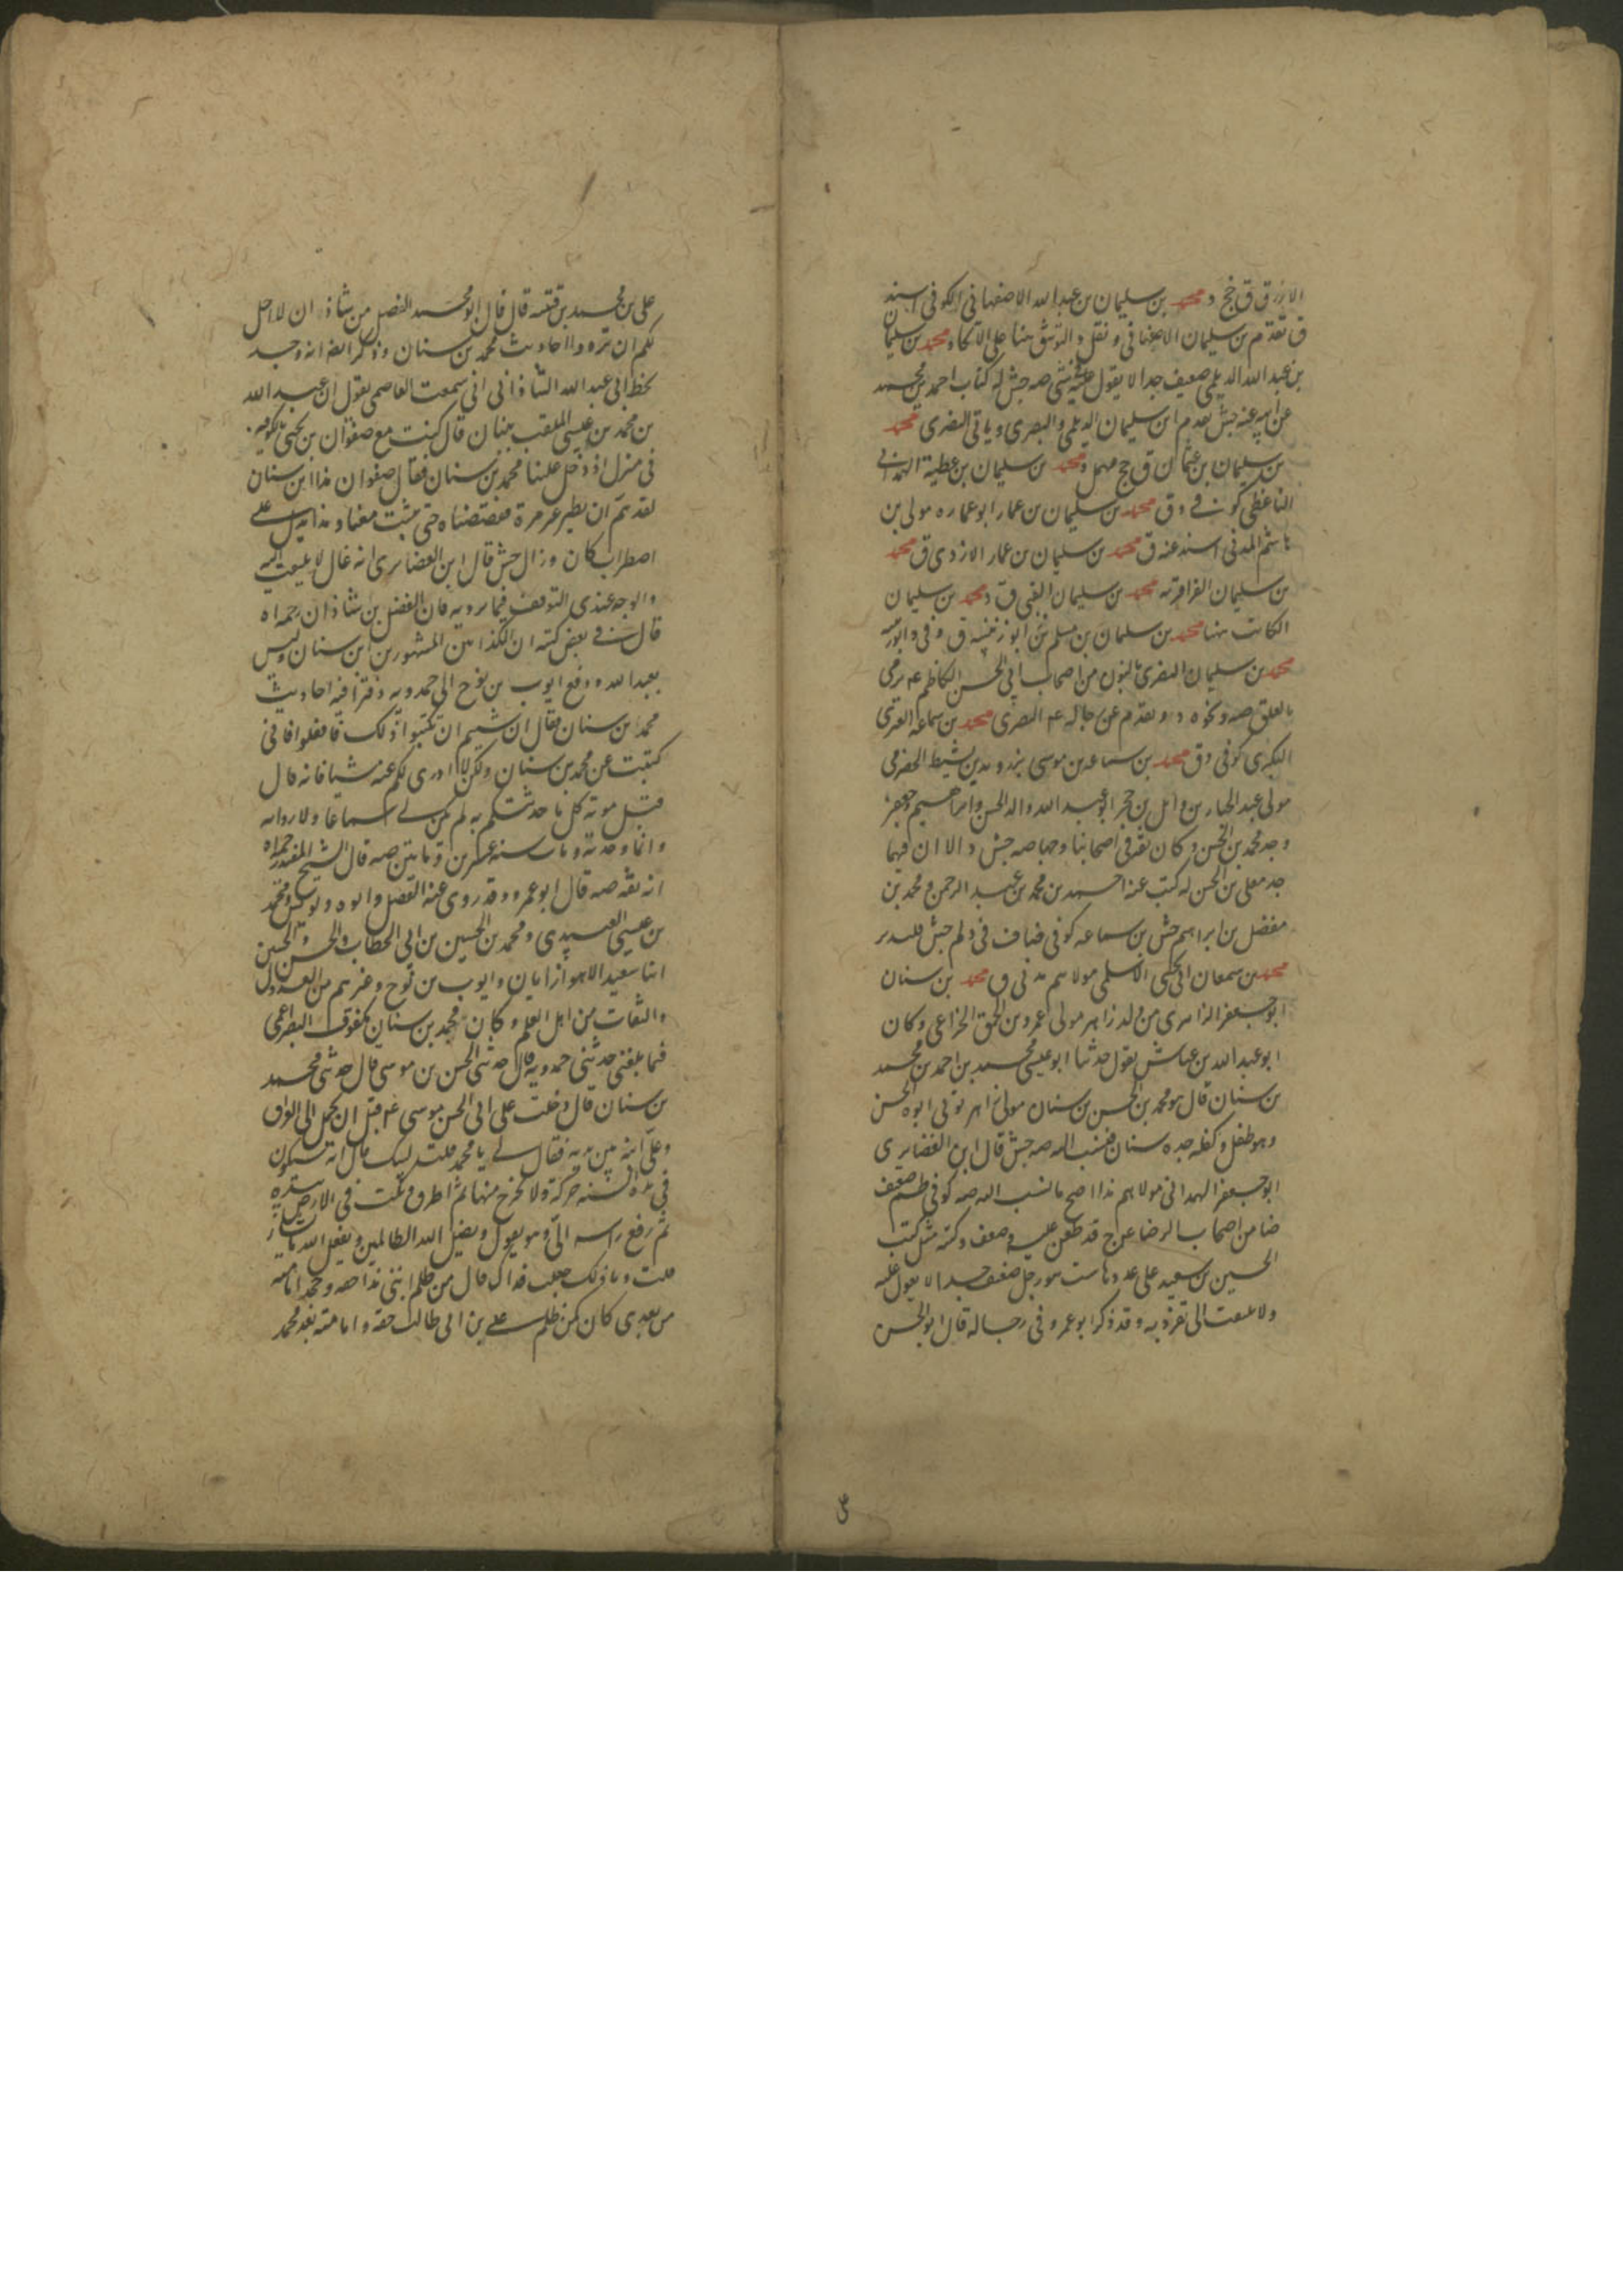 الازرق ق جخ و محمد بن سليمان بن عبدالله الاصفهاني الكوفي اسند
ق تقدم بن سليمان الاصفهاني و نقل د التوثيق هنا على الاتحاد محمد بن سليمان
بن عبدالله الديلمي ضعيف جدا لا يعول عليه في شي صه جش له كتاب احمد بن محمد
عن ابيه عنه جش تقدم ابن سليمان الديلمي والبصري و ياتي النصري محمد
بن سليمان بن عثمان ق جخ مهمل و محمد بن سليمان بن عطية
الناعظي كوفي ق محمد بن سليمان بن عمار ابو عماره مولى بن
هاشم المدني اسند عنه ق محمد بن سليمان بن عمار الازدي ق محمد
بن سليمان الفرا محمد بن سليمان ق و محمد بن سليمان
الكاتب محمد بن سليمان بن مسلم ابو زنيبه ق
محمد بن سليمان النصري بالنون من اصحاب ابي الحسن الكاظم ع يرمى
بالغلو صه و نحوه د و تقدم عن رجاله ع البصري محمد بن سماعه العنزي
البكري كوفي ق محمد بن سماعه بن موسى بن رويد بن نشيط الحضرمي
مولى عبد الجبار بن وائل بن حجر ابو عبدالله والد الحسن وابراهيم وجعفر
وجد محمد بن الحسن وكان ثقة في اصحابنا وجها صه جش د الا ان فيها
جد معلى بن الحسن له كتب عنه احمد بن محمد بن عبد الرحمن و محمد بن
مفضل بن ابراهيم جش بن سماعه كوفي
محمد بن سمعان ابي يحيى الاسلمي مولاهم مدني ق محمد بن سنان
ابو جعفر الزاهري من ولد زاهر مولى عمرو بن الحمق الخزاعي وكان
ابو عبدالله بن عياش يقول حدثنا ابو عيسى محمد بن احمد بن محمد
بن سنان قال هو محمد بن الحسن بن سنان مولى زاهر توفى ابوه الحسن
وهو طفل و كفله جده سنان فنسب اليه صه جش قال ابن الغضايري
ابو جعفر الهمداني مولاهم هذا اصح ما نسب اليه صه كوفي ظم ضعيف
ضا من اصحاب الرضا ع جخ قد طعن عليه وضعف وكتبه مثل كتب
الحسين بن سعيد على عددها ست هو رجل ضعيف جدا لا يعول عليه
ولا يلتفت الى تفرد به وقد ذكر ابو عمرو في رجاله قال ابو الحسن
على بن محمد بن قتيبه قال قال ابو محمد الفضل بن شاذان لا احل
لكم ان ترووا احاديث محمد بن سنان و ذكر ايضا انه وجد
بخط ابي عبدالله الشاذاني اني سمعت العاصمي يقول ان عبدالله
بن محمد بن عيسى الملقب ببنان قال كنت مع صفوان بن يحيى بالكوفه
في منزل اذ دخل علينا محمد بن سنان فقال صفوان هذا ابن سنان
لقد هم ان يطير غير مرة فقصصناه حتى ثبت معنا و هذا يدل على
اضطراب كان و زال جش قال ابن الغضايري انه غال لا يلتفت اليه
والوجه عندي التوقف فيما يرويه فان الفضل بن شاذان رحمه اه
قال في بعض كتبه ان الكذابين المشهورين ابن سنان وليس
بعبدالله و دفع ايوب بن نوح الى حمدويه دفترا فيه احاديث
محمد بن سنان فقال ان شيتم ان تكتبوا ذلك فافعلوا فاني
كتبت عن محمد بن سنان ولكن لا اروى لكم عنه شيا فانه قال
قبل موته كل ما حدثتكم به لم يكن لي سماعا ولا روايه
وانما وجدته ومات سنه عشرين و مايتين صه قال الشيخ المفيد رحمه اه
انه ثقه صه قال ابو عمرو وقد روى عنه الفضل وابوه و يونس و محمد
بن عيسى العبيدي و محمد بن الحسين بن ابي الخطاب والحسن والحسين
ابنا سعيد الاهوازيان وايوب بن نوح و غيرهم من العدول
والثقات من اهل العلم و كان محمد بن سنان مكفوف البصر اعمى
فيما بلغني حدثني حمدويه قال حدثني الحسن بن موسى قال حدثني محمد
بن سنان قال دخلت على ابي الحسن موسى ع قبل ان يحمل الى العراق
و علي ابنه بين يديه فقال لي يا محمد قلت لبيك قال انه سيكون
في هذه السنه حركة ولا تخرج منها ثم اطرق و نكت في الارض بيده
ثم رفع راسه الي وهو يقول و يضل الله الظالمين ويفعل الله ما يشاء
قلت وما ذلك جعلت فداك قال من ظلم ابني هذا حقه و جحد امامته
من بعدي كان كمن ظلم علي بن ابي طالب حقه و امامته بعد محمد